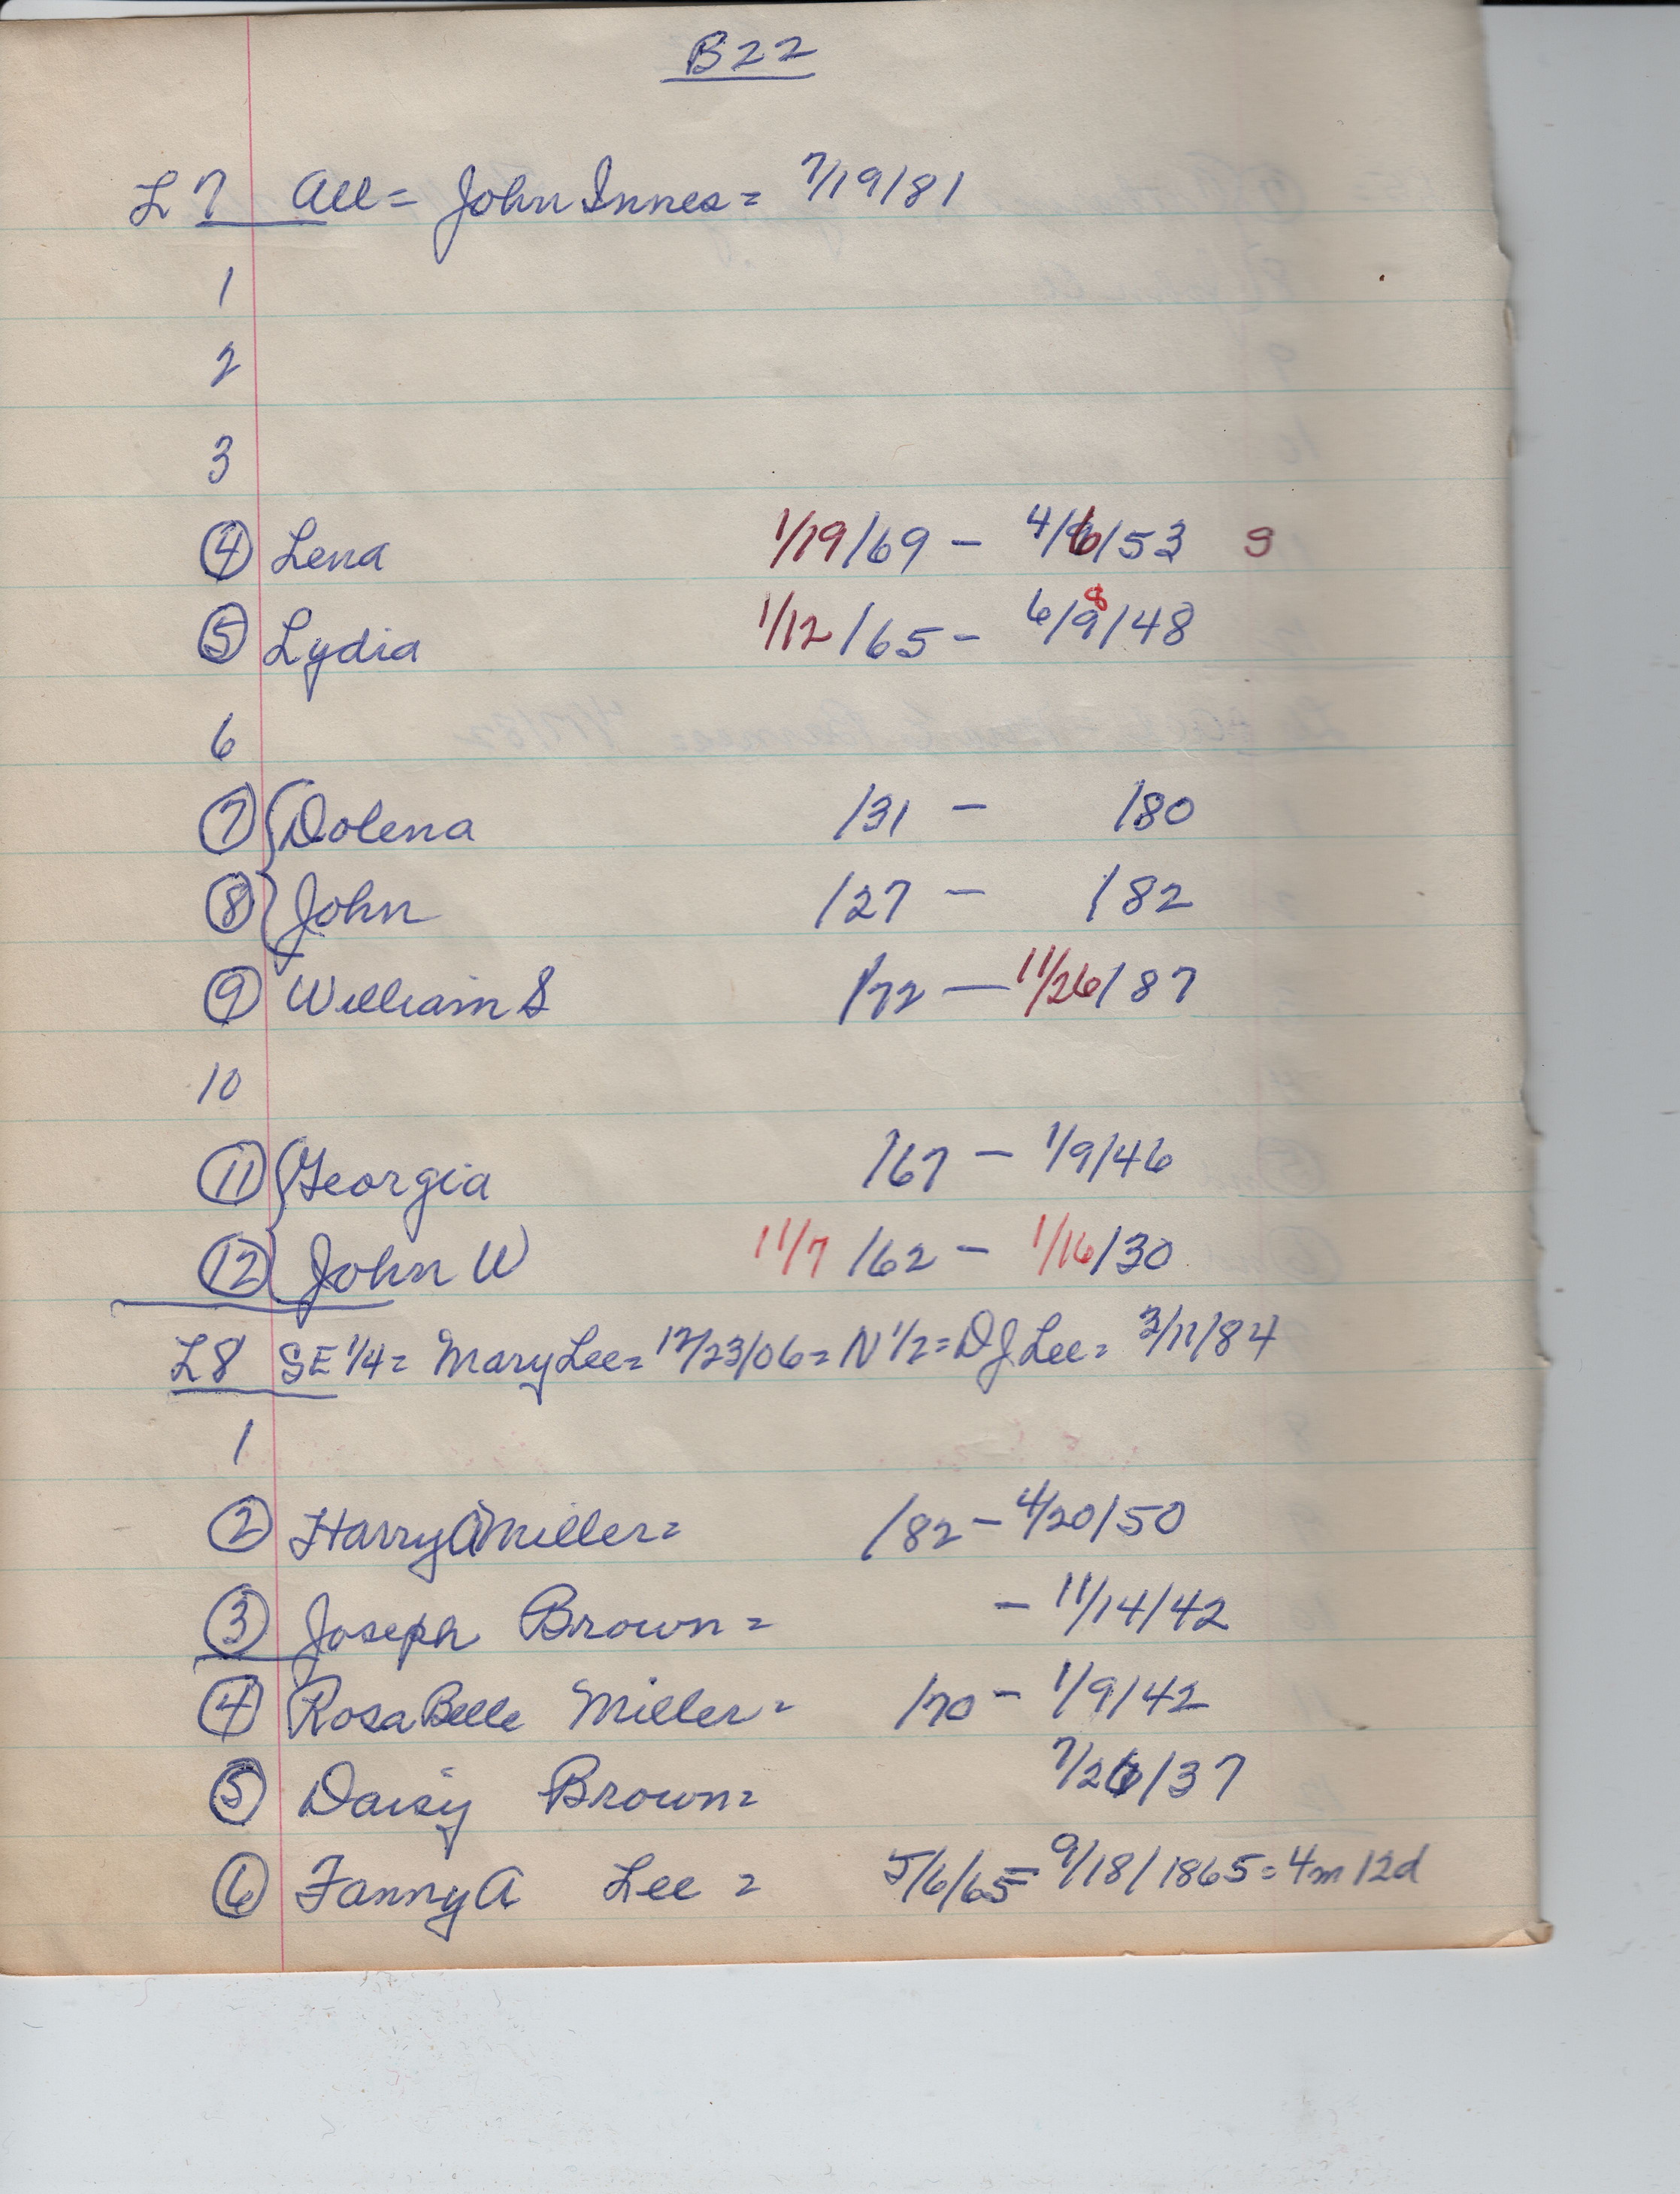 B22
L7 All = John Innes = 7/19/81
1
2
3
4 Lena 1/19/69 – 4/6/53 S
5 Lydia 1/12/65 – 6/8/48
6
7 Dolena /31 – /80
8 John /27 – /82
9 William S /72 – 11/26/87
10
11 Georgia /67 – 1/9/46
12 John W 11/7/62 – 1/16/30
L8 SE 1/4 = Mary Lee = 12/23/06 = N 1/2 = D J Lee = 3/11/84
1
2 Harry A Miller = /82 – 4/20/50
3 Joseph Brown = – 11/14/42
4 Rosa Belle Miller = /70 – 1/9/42
5 Daisy Brown = 7/26/37
6 Fanny A Lee = 5/6/65 = 9/18/1865 = 4m 12d